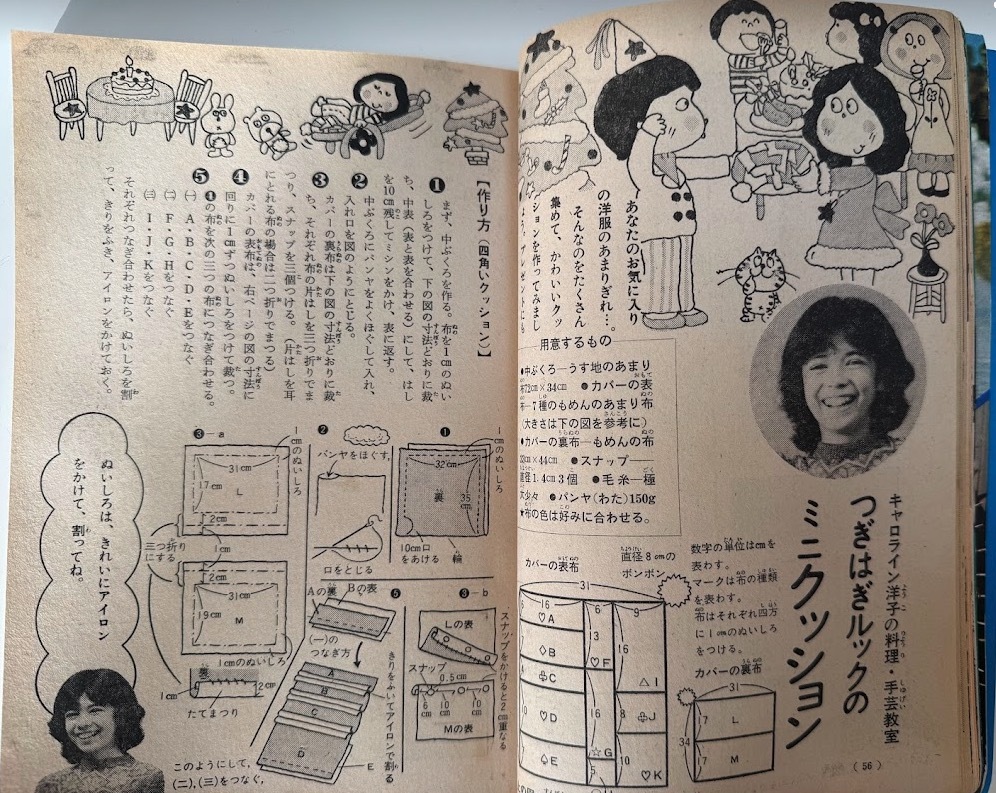 キャロライン洋子の料理・手芸教室
つぎはぎルックの
ミニクッション
あなたのお気に入り
の洋服のあまりぎれ…
そんなのをたくさん
集めて、かわいいクッ
ションを作ってみまし
用意するもの
●中ぶくろ―うす地のあまり
布72cm×34cm ●カバーの表
布―7種のもめんのあまり布
(大きさは下の図を参考に)
●カバーの裏布―もめんの布
32cm×44cm ●スナップ―
直径1.4cm3個 ●毛糸―極
太少々 ●パンヤ(わた)150g
★布の色は好みに合わせる。
数字の単位はcmを
表わす。
マークは布の種類
を表わす。
布はそれぞれ四方
に1cmのぬいしろ
をつける。
カバーの表布
直径8cmの
ポンポン
31
16
6
9
♡A
◇B
♧C
♡D
♤E
13
♡F
16
☆G
5
16
△I
8
♧J
10
♡K
カバーの裏布
31
17
L
34
17
M
(56)
【作り方(四角いクッション)】
❶まず、中ぶくろを作る。布を1cmのぬい
しろをつけて、下の図の寸法どおりに裁
ち、中表(表と表を合わせる)にして、はし
を10cm残してミシンをかけ、表に返す。
❷中ぶくろにパンヤをよくほぐして入れ、
入れ口を図のようにとじる。
❸カバーの裏布は下の図の寸法どおりに裁
ち、それぞれ布の片はしを三つ折りでま
つり、スナップを三個つける。(片はしを耳
にとれる布の場合は二つ折りでまつる)
❹カバーの表布は、右ページの図の寸法に
回りに1cmずつぬいしろをつけて裁つ。
❺❹の布を次の三つの布につなぎ合わせる。
(一)A・B・C・D・Eをつなぐ
(二)F・G・Hをつなぐ
(三)I・J・Kをつなぐ
それぞれつなぎ合わせたら、ぬいしろを割
って、きりをふき、アイロンをかけておく。
❶
1cmのぬいしろ
32cm
裏
35cm
10cm口
をあける
輪
❷
パンヤをほぐす
口をとじる
❸―a
1cmのぬいしろ
31cm
17cm
L
2cm
1cm
三つ折り
にする
2cm
31cm
19cm
M
1cmのぬいしろ
裏
1cm
2cm
たてまつり
❸―b
Lの表
スナップ
0.5cm
6cm
10cm
10cm
Mの表
スナップをかけると2cm重なる
❺
Aの裏
Bの表
(一)の
つなぎ方
A
B
C
D
E
きりをふいてアイロンで割る
このようにして、
(二)、(三)をつなぐ，
ぬいしろは、きれいにアイロン
をかけて、割ってね。